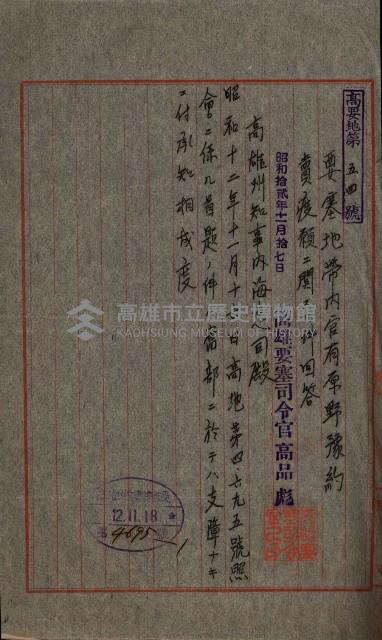 高要地第五四號
要塞地帶內官有原野豫約
賣渡願ニ關スル件回答
昭和拾貳年十一月拾七日
高雄要塞司令官 高品 彪
高雄州知事內海忠司殿
昭和十二年十一月十 日高地第四六九五號照
會ニ係ル首題ノ件當部ニ於テハ支障ナキ
ニ付承知相成度
12.11.18
第4695號
高雄市立歷史博物館
KAOHSIUNG MUSEUM OF HISTORY